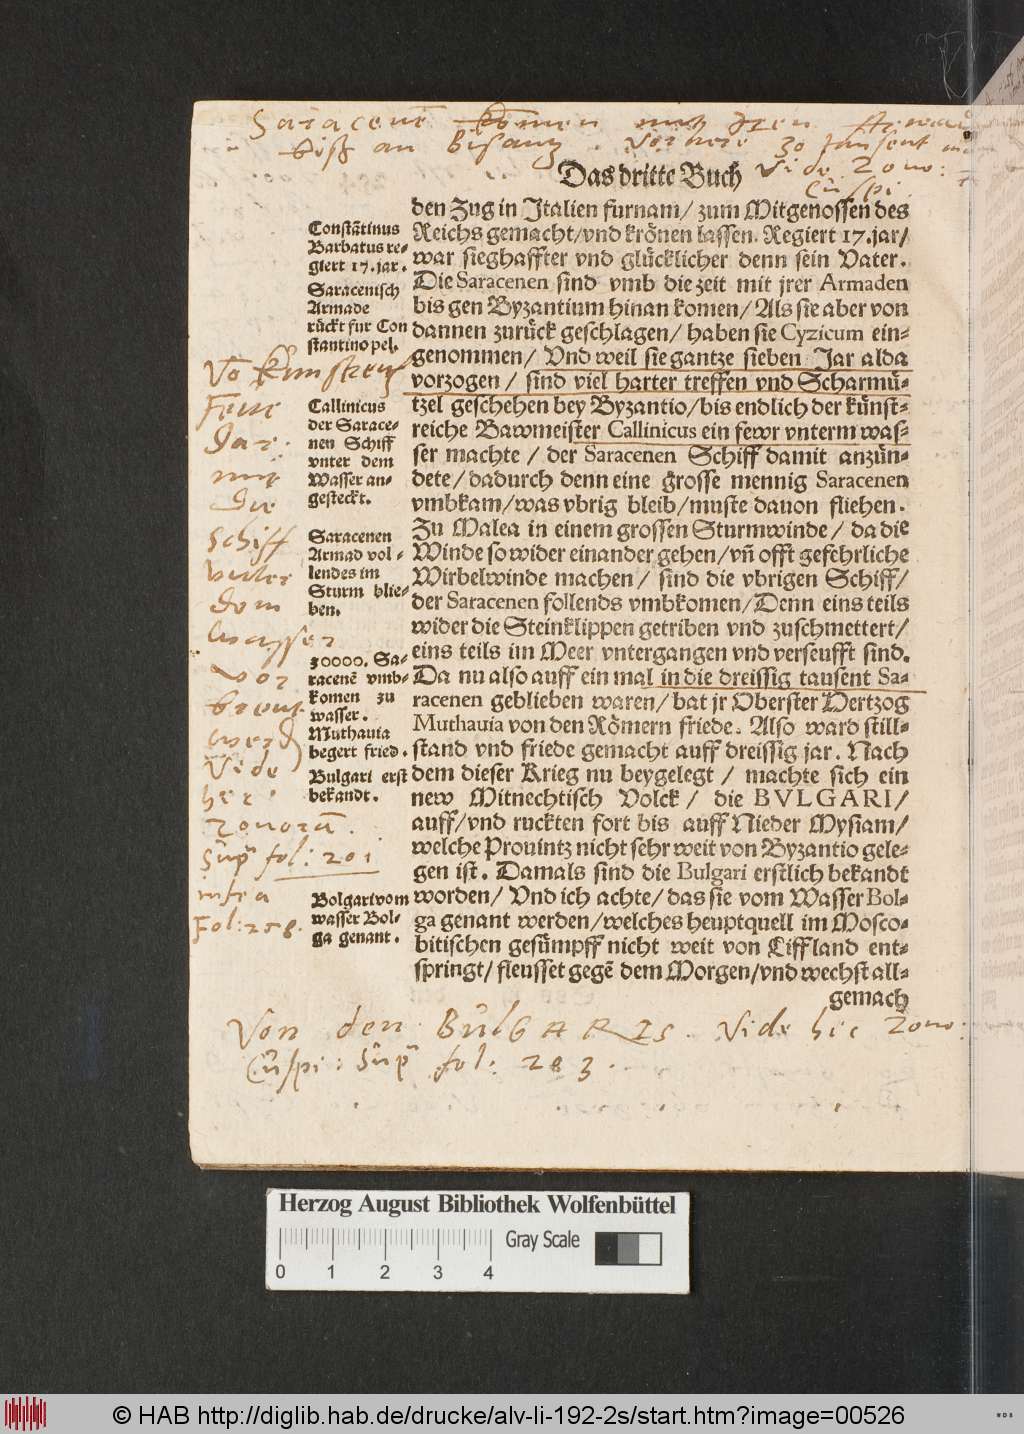 Saracenē komen mit jren Armad
biß an Bisantz. Verliere 30 tausent
Vide Zono:
Cuspi
Das dritte Buch
den Zug in Italien furnam/ zum Mitgenossen des
Reichs gemacht/vnd krönen lassen. Regiert 17.jar/
war sieghaffter vnd glücklicher denn sein Vater.
Die Saracenen sind vmb die zeit mit jrer Armaden
bis gen Byzantium hinan komen/ Als sie aber von
dannen zurück geschlagen/ haben sie Cyzicum ein-
genommen/ Vnd weil sie gantze sieben Jar alda
vorzogen/ sind viel harter treffen vnd Scharmü-
tzel geschehen bey Byzantio/bis endlich der künst-
reiche Bawmeister Callinicus ein fewr vnterm was-
ser machte/ der Saracenen Schiff damit anzün-
dete/dadurch denn eine grosse mennig Saracenen
vmbkam/was vbrig bleib/muste dauon fliehen.
Zu Malea in einem grossen Sturmwinde/ da die
Winde so wider einander gehen/vñ offt gefehrliche
Wirbelwinde machen/ sind die vbrigen Schiff/
der Saracenen follends vmbkomen/Denn eins teils
wider die Steinklippen getriben vnd zuschmettert/
eins teils im Meer vntergangen vnd verseufft sind.
Da nu also auff ein mal in die dreissig tausent Sa-
racenen geblieben waren/ bat jr Oberster Hertzog
Muthauia von den Römern friede. Also ward still-
stand vnd friede gemacht auff dreissig jar. Nach
dem dieser Krieg nu beygelegt/ machte sich ein
new Mitnechtisch Volck/ die BVLGARI/
auff/vnd ruckten fort bis auff Nieder Mysiam/
welche Prouintz nicht sehr weit von Byzantio gele-
gen ist. Damals sind die Bulgari erstlich bekandt
worden/ Vnd ich achte/das sie vom Wasser Bol-
ga genant werden/welches heuptquell im Mosco-
bitischen gesümpff nicht weit von Liffland ent-
springt/ fleusset gegē dem Morgen/vnd wechst all-
gemach
Constātinus
Barbatus re-
giert 17.jar.
Saracenisch
Armade
rückt fur Con
stantinopel.
Callinicus
der Sarace-
nen Schiff
vnter dem
Wasser an-
gesteckt.
Saracenen
Armad vol-
lendes im
Sturm blie-
ben.
30000. Sa-
racenē vmb-
komen zu
wasser.
Muthauia
begert fried.
Bulgari erst
bekandt.
Bolgari vom
wasser Bol-
ga genant.
Vō
Feur
Dar
mit
die
Schiff
vnter
dem
Wasser
vor
brent
werd
Vide
her
Zonorā.
Sup fol: 201
infra
Fol: 258.
Von den BULGARIS. Vide hic Zono:
Cuspi: Sup fol: 203.
Herzog August Bibliothek Wolfenbüttel
Gray Scale
0 1 2 3 4
© HAB http://diglib.hab.de/drucke/alv-li-192-2s/start.htm?image=00526